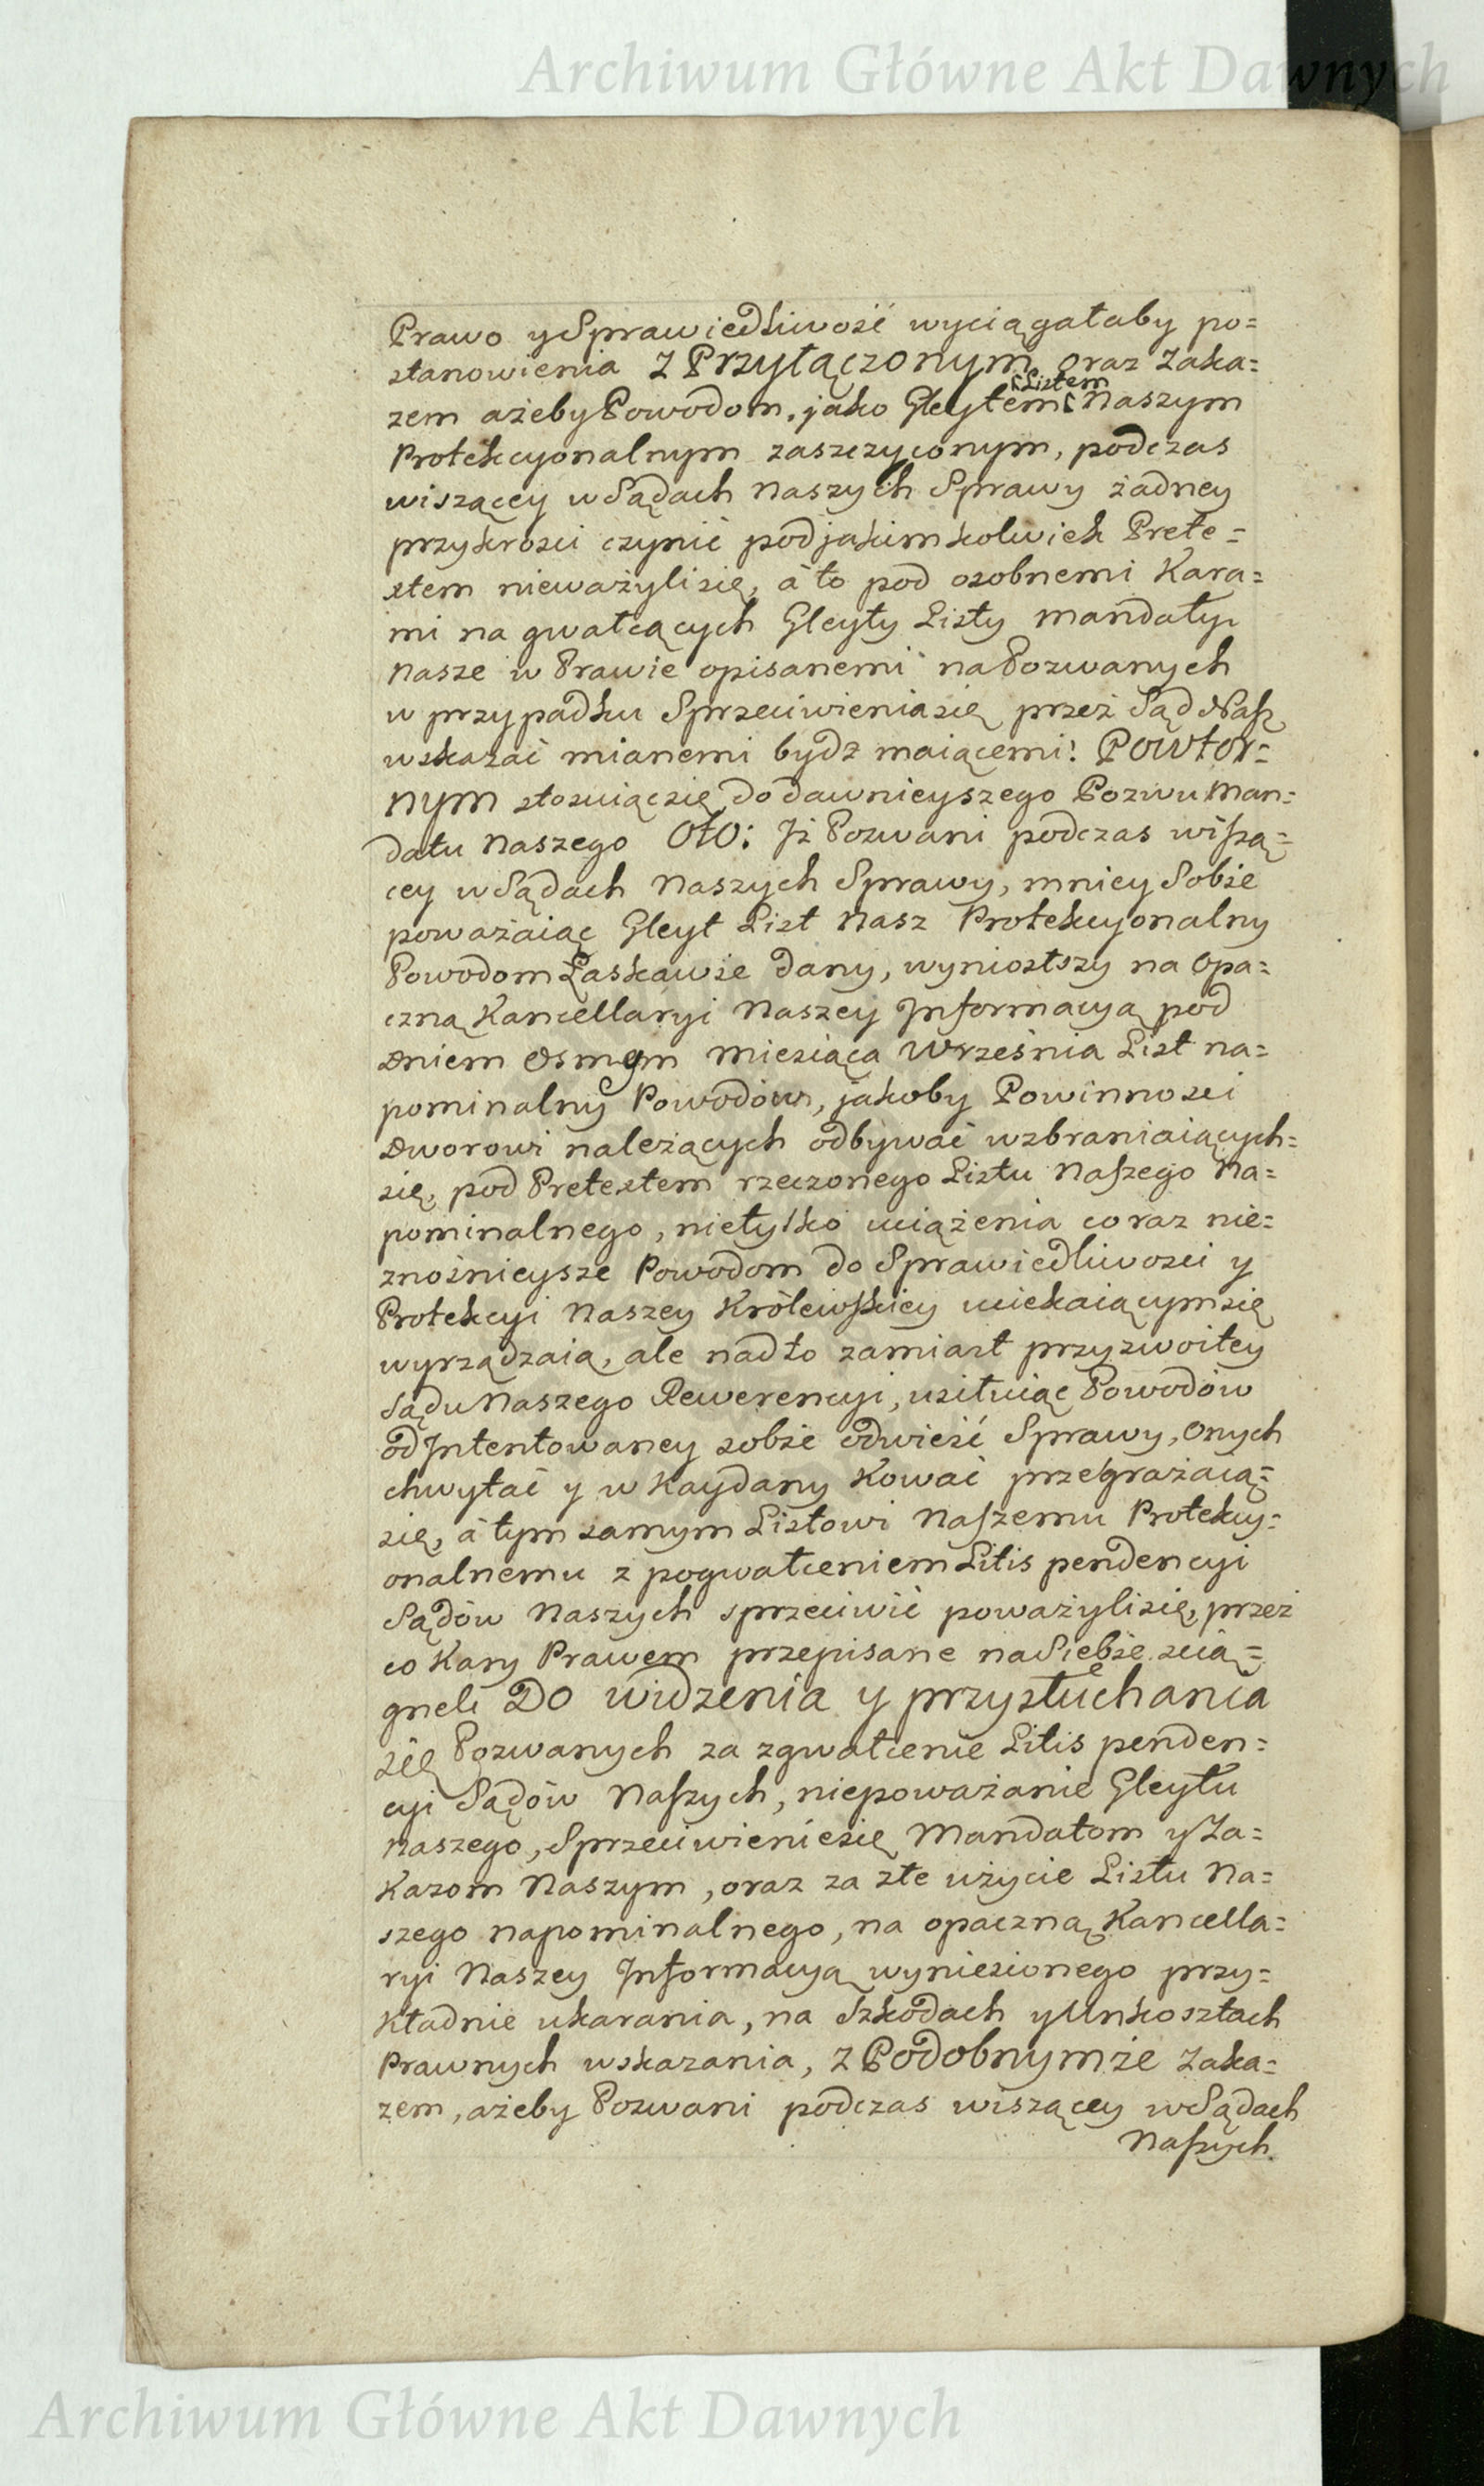 Archiwum Główne Akt Dawnych
Prawo y Sprawiedliwość wyciągałaby po=
stanowienia Z Przyłączonym oraz Zaka=
Listem
zem ażeby Powodom, jako Gleytem Naszym
Protekcyonalnym zaszczyconym, podczas
wiszącey w Sądach Naszych Sprawy żadney
przykrości czynić pod jakimkolwiek Prete=
stem nieważyli się, á to pod osobnemi Kara=
mi na gwałcących Gleyty Listy Mandaty
Nasze w Prawie opisanemi na Pozwanych
w przypadku Sprzeciwienia się przez Sąd Nasz
wskazać mianemi bydz maiącemi: Powtor=
nym stosuiąc się do dawnieyszego Pozwu Man=
datu Naszego Oto: Iż Pozwani podczas wiszą=
cey w Sądach Naszych Sprawy, mniey Sobie
poważaiąc Gleyt List Nasz Protekcyonalny
Powodom Łaskawie dany, wyniosłszy na Opa=
czną Kancellaryi Naszey Informacyą pod
Dniem Osmym Miesiąca Września List na=
pominalny Powodów, jakoby Powinności
Dworowi należących odbywać wzbraniaiących=
się, pod Pretextem rzeczonego Listu Naszego Na=
pominalnego, nietylko uciążenia coraz nie=
znośnieysze Powodom do Sprawiedliwości y
Protekcyi Naszey Królewskiey uciekaiącym się
wyrządzaią, ale nadto zamiast przyzwoitey
Sądu Naszego Rewerencyi, usiłuiąc Powodów
od Intentowaney sobie odwieść Sprawy, Onych
chwytać y w Kaydany Kować przegrażaią=
się, á tym samym Listowi Naszemu Protekcy=
onalnemu z pogwałceniem Litis pendencyi
Sądów Naszych sprzeciwić poważyli się, przez
co Kary Prawem przepisane na Siebie ścią=
gneli Do widzenia y przysłuchania
się Pozwanych za zgwałcenie Litis penden=
cyi Sądów Naszych, niepoważanie Gleytu
Naszego, Sprzeciwienie się Mandatom y Za=
Kazom Naszym, oraz za złe użycie Listu Na=
szego napominalnego, na opaczną Kancella=
ryi Naszey Informacyą wyniesionego przy=
Kładnie ukarania, na Szkodach y Unkosztach
Prawnych wskazania, Z Podobnymże Zaka=
zem, ażeby Pozwani podczas wiszącey w Sądach
Naszych
Archiwum Główne Akt Dawnych